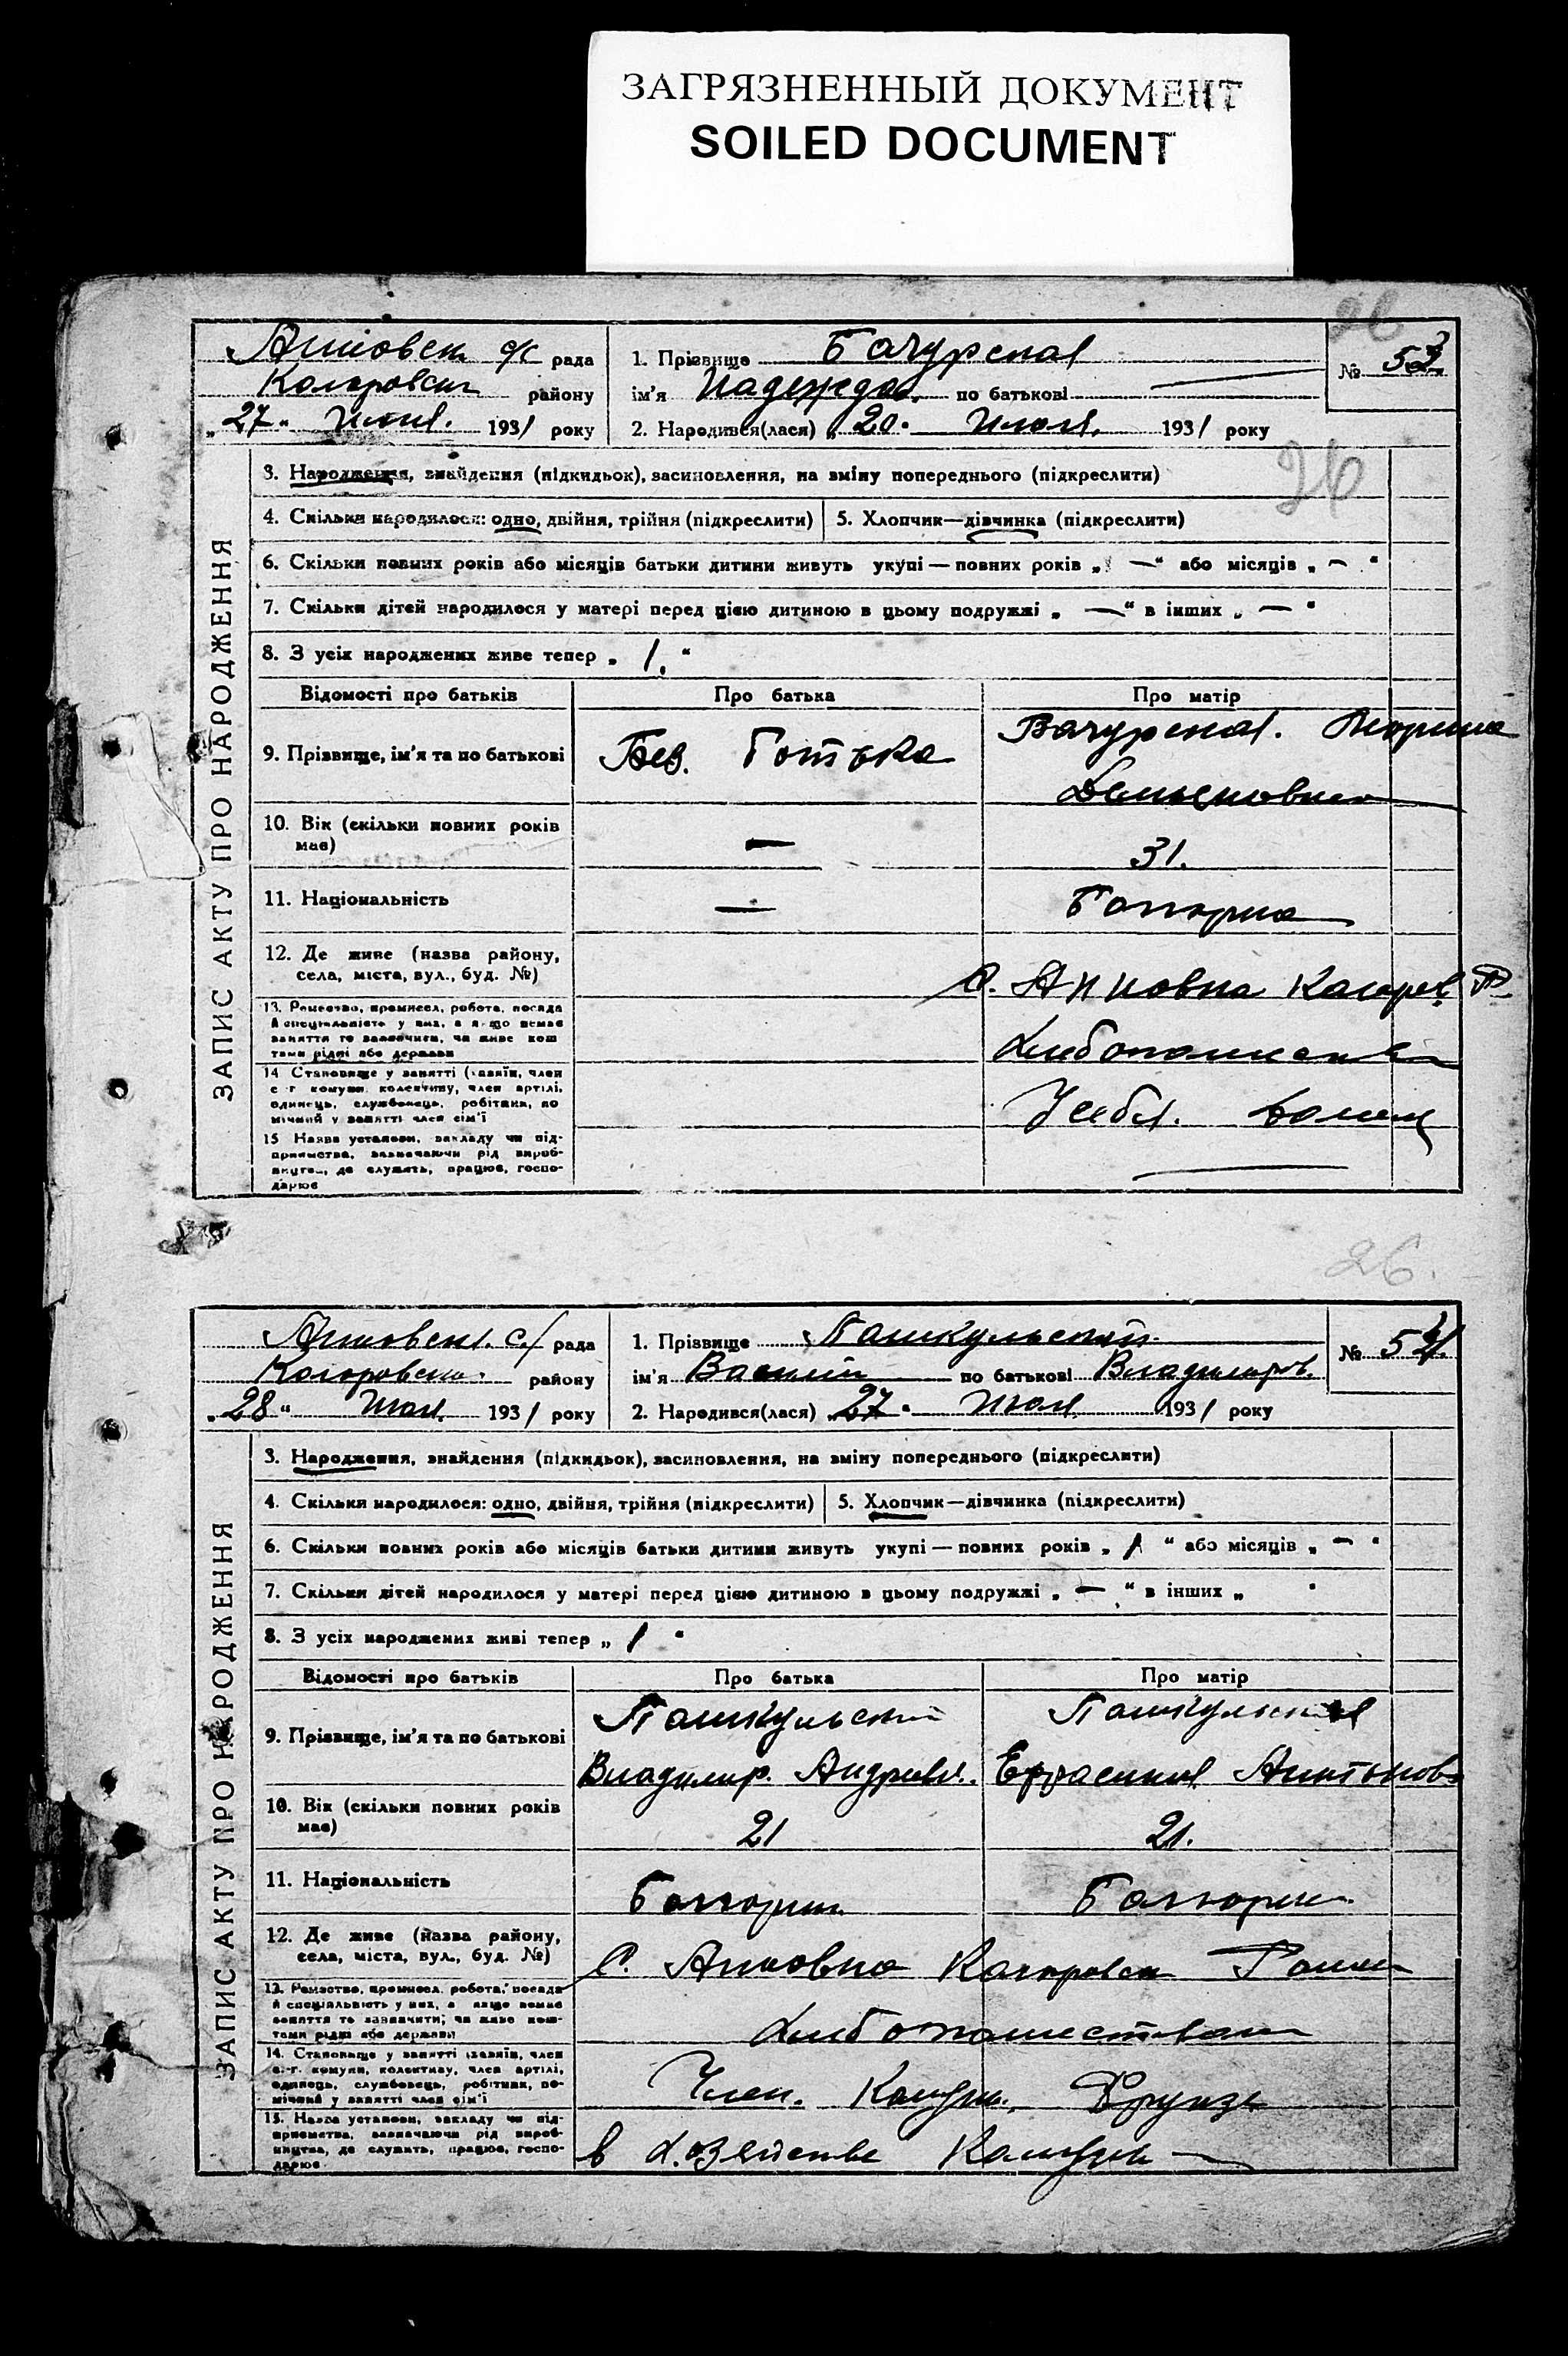 ЗАГРЯЗНЕННЫЙ ДОКУМЕНТ
SOILED DOCUMENT
26
Анновск с/с рада
Коларовск району
„27“ Июля. 1931 року
1. Прізвище Бачурская
ім'я Надежда. по батькові
2. Народився(лася) „20“ Июля. 1931 року
№ 53
26
ЗАПИС АКТУ ПРО НАРОДЖЕННЯ
3. Народження, знайдення (підкидьок), засиновлення, на зміну попереднього (підкреслити)
4. Скільки народилося: одно, двійня, трійня (підкреслити)
5. Хлопчик—дівчинка (підкреслити)
6. Скільки повних років або місяців батьки дитини живуть укупі — повних років „ — “ або місяців „ — “
7. Скільки дітей народилося у матері перед цією дитиною в цьому подружжі „ — “ в інших „ — “
8. З усіх народжених живе тепер „ 1. “
Відомості про батьків
Про батька
Про матір
9. Прізвище, ім'я та по батькові
Без.
Бачурская.
10. Вік (скільки повних років має)
—
31.
11. Національність
—
Болгарка
12. Де живе (назва району, села, міста, вул., буд. №)
с. Анновка Колоров. Р.
13. Ремество, промисел, робота, посада й спеціальність у них, а якщо немає заняття то зазначити, чи живе коштами рідні або держави
14. Становище у занятті (хазяїн, член с.-г. комуни, колективу, член артілі, одинець, службовець, робітник, помічний у занятті член сім'ї
15. Назва установи, закладу чи підприємства, зазначаючи рід виробництва, де служить, працює, господарює
26.
Анновск. с/ рада
Коларовск. району
„28“ Июля. 1931 року
1. Прізвище Пашкульский
ім'я Василий по батькові Владимиров.
2. Народився(лася) „27“ Июля 1931 року
№ 54.
ЗАПИС АКТУ ПРО НАРОДЖЕННЯ
3. Народження, знайдення (підкидьок), засиновлення, на зміну попереднього (підкреслити)
4. Скільки народилося: одно, двійня, трійня (підкреслити)
5. Хлопчик—дівчинка (підкреслити)
6. Скільки повних років або місяців батьки дитини живуть укупі — повних років „ 1 “ або місяців „ — “
7. Скільки дітей народилося у матері перед цією дитиною в цьому подружжі „ — “ в інших „ “
8. З усіх народжених живі тепер „ 1 “
Відомості про батьків
Про батька
Про матір
9. Прізвище, ім'я та по батькові
Пашкульский
Владимир. Андреев.
Пашкульская
Ефрасиния Антонов
10. Вік (скільки повних років має)
21
21.
11. Національність
Болгарин
Болгарк.
12. Де живе (назва району, села, міста, вул., буд. №)
С. Анновка Коларовск Район
13. Ремество, промисел, робота, посада й спеціальність у них, а якщо немає заняття то зазначити; чи живе коштами рідні або держави
Хлебопашеством
14. Становище у занятті (хазяїн, член с.-г. комуни, колективу, член артілі, одинець, службовець, робітник, помічний у занятті член сім'ї
Член. Комун. Фрунзе
15. Назва установи, закладу чи підприємства, зазначаючи рід виробництва, де служить, працює, господарює
в Хозяйстве Комуны